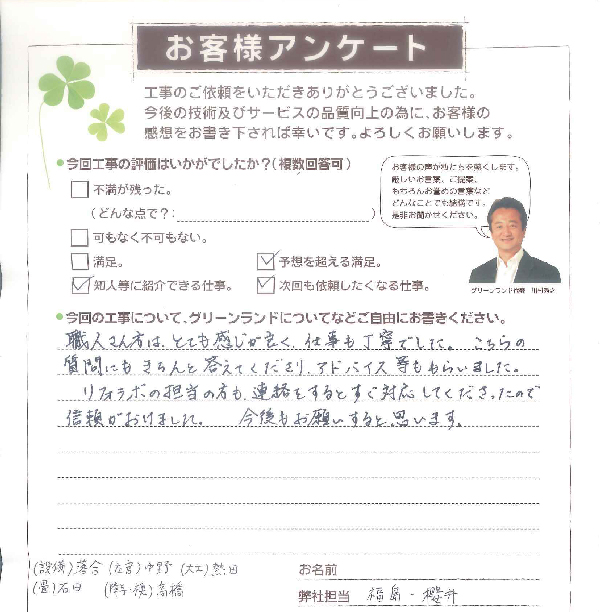 お客様アンケート
工事のご依頼をいただきありがとうございました。
今後の技術及びサービスの品質向上の為に、お客様の
感想をお書き下されば幸いです。よろしくお願いします。
今回工事の評価はいかがでしたか？（複数回答可）
不満が残った。
（どんな点で？：　）
可もなく不可もない。
満足。
予想を超える満足。
知人等に紹介できる仕事。
次回も依頼したくなる仕事。
お客様の声が私たちを強くします。
厳しいお言葉、ご提案、
もちろんお誉めの言葉など
どんなことでも結構です。
是非お聞かせください。
グリーンランド代表
今回の工事について、グリーンランドについてなどご自由にお書きください。
職人さん方は、とても感じが良く、仕事も丁寧でした。こちらの
質問にもきちんと答えてくださり、アドバイス等ももらいました。
リフォラボの担当の方も、連絡をするとすぐ対応してくださったので
信頼がおけました。　今後もお願いすると思います。
(設備)落合 (左官)中野 (大工)熱田
(畳)石田 高橋
お名前
弊社担当 福島・櫻井